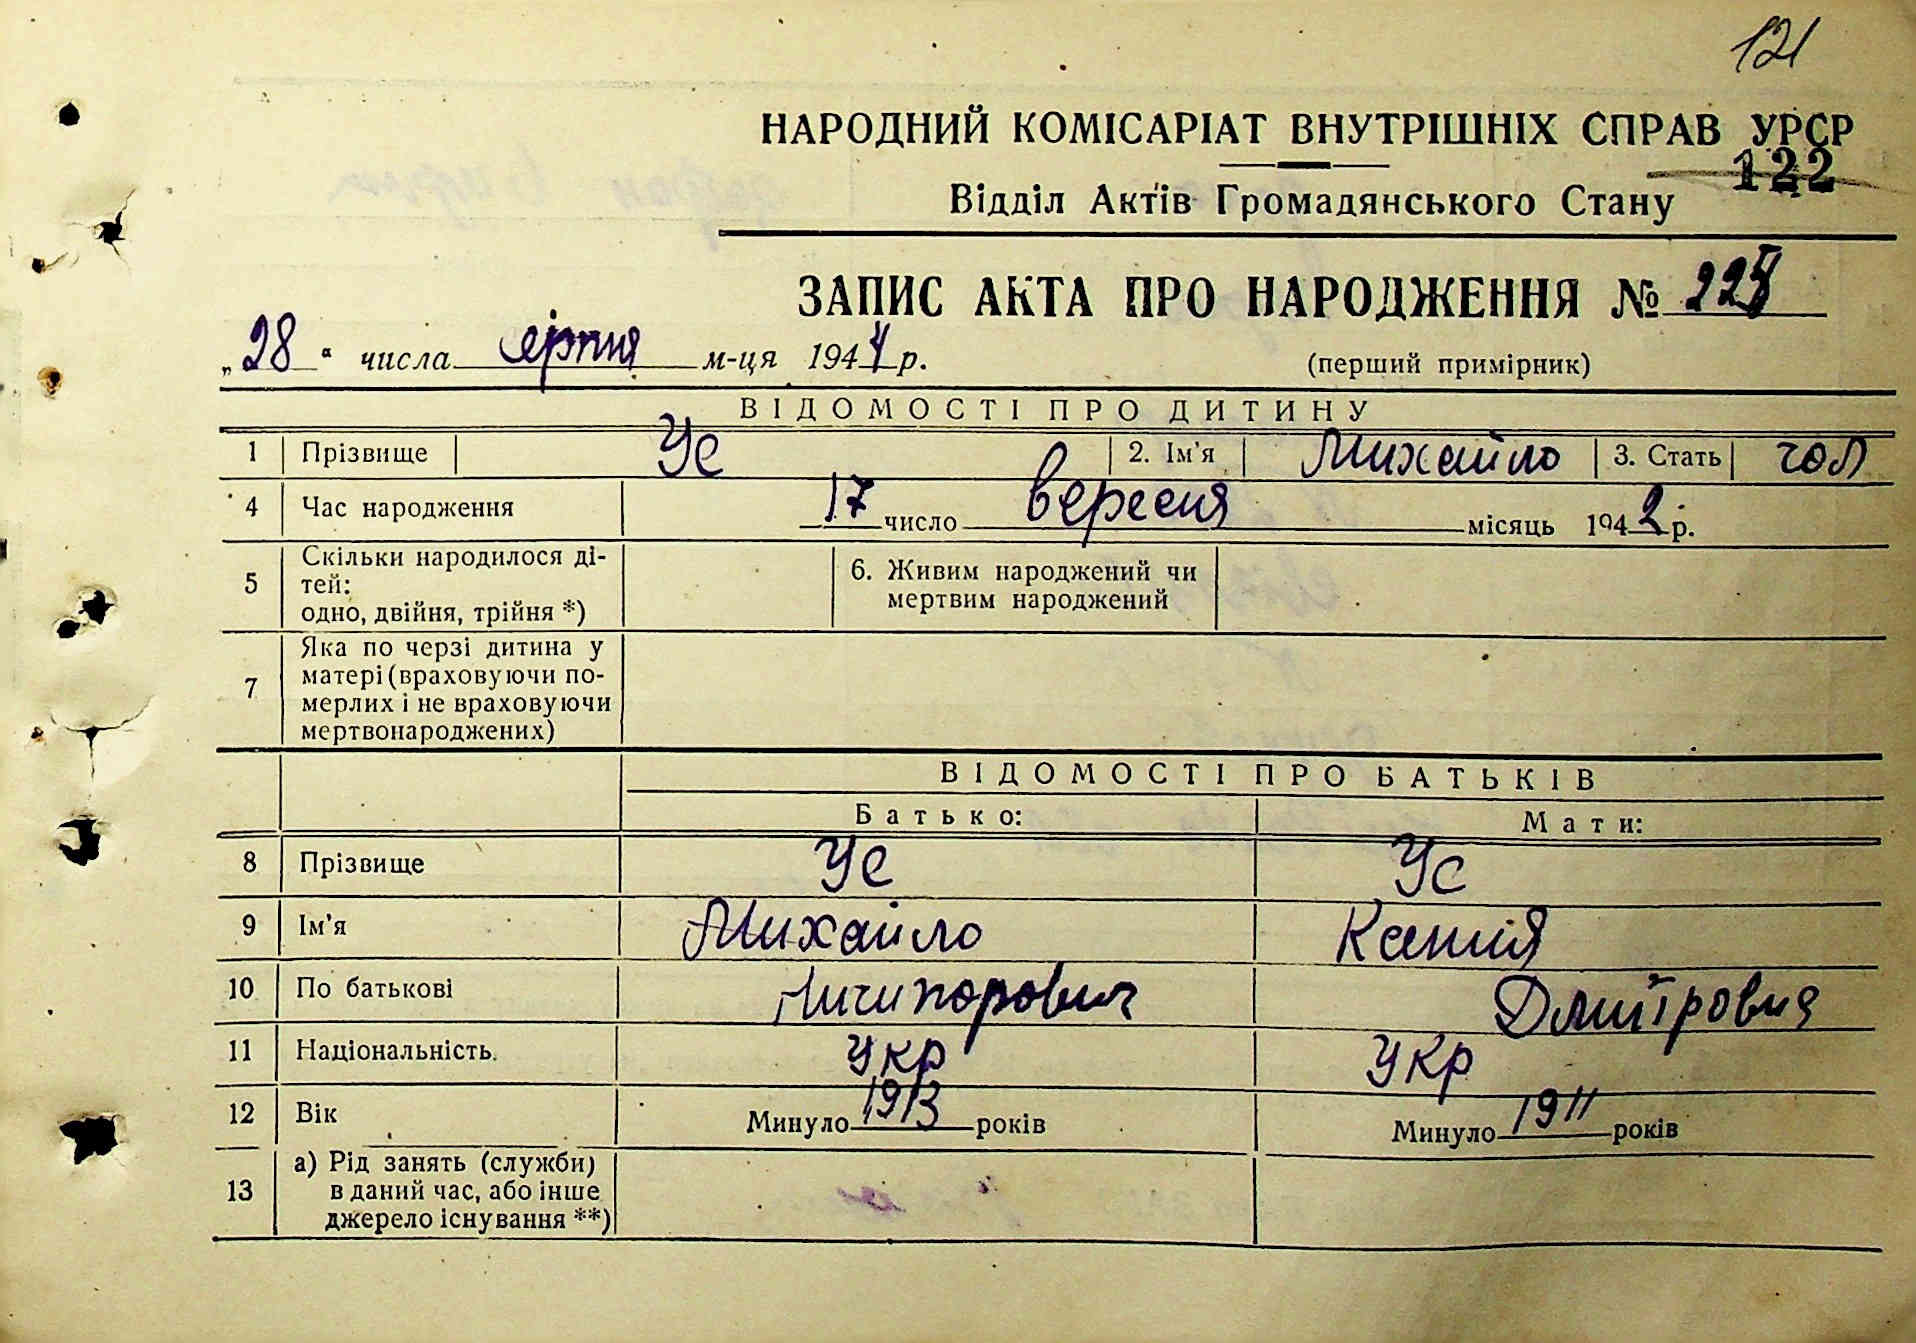 121
НАРОДНИЙ КОМІСАРІАТ ВНУТРІШНІХ СПРАВ УРСР
122
Відділ Актів Громадянського Стану
ЗАПИС АКТА ПРО НАРОДЖЕННЯ №
„28“ числа серпня м-ця 1944 р.
(перший примірник)
ВІДОМОСТІ ПРО ДИТИНУ
1 Прізвище Ус 2. Ім'я Михайло 3. Стать чол
4 Час народження 17 число вересня місяць 1942 р.
5 Скільки народилося ді-
тей:
одно, двійня, трійня *)
6. Живим народжений чи
мертвим народжений
7 Яка по черзі дитина у
матері (враховуючи по-
мерлих і не враховуючи
мертвонароджених)
ВІДОМОСТІ ПРО БАТЬКІВ
Батько: Мати:
8 Прізвище Ус Ус
9 Ім'я Михайло Ксенія
10 По батькові Ничипорович Дмитровна
11 Національність. Укр Укр
12 Вік Минуло 1913 років Минуло 1911 років
13 а) Рід занять (служби)
в даний час, або інше
джерело існування **)